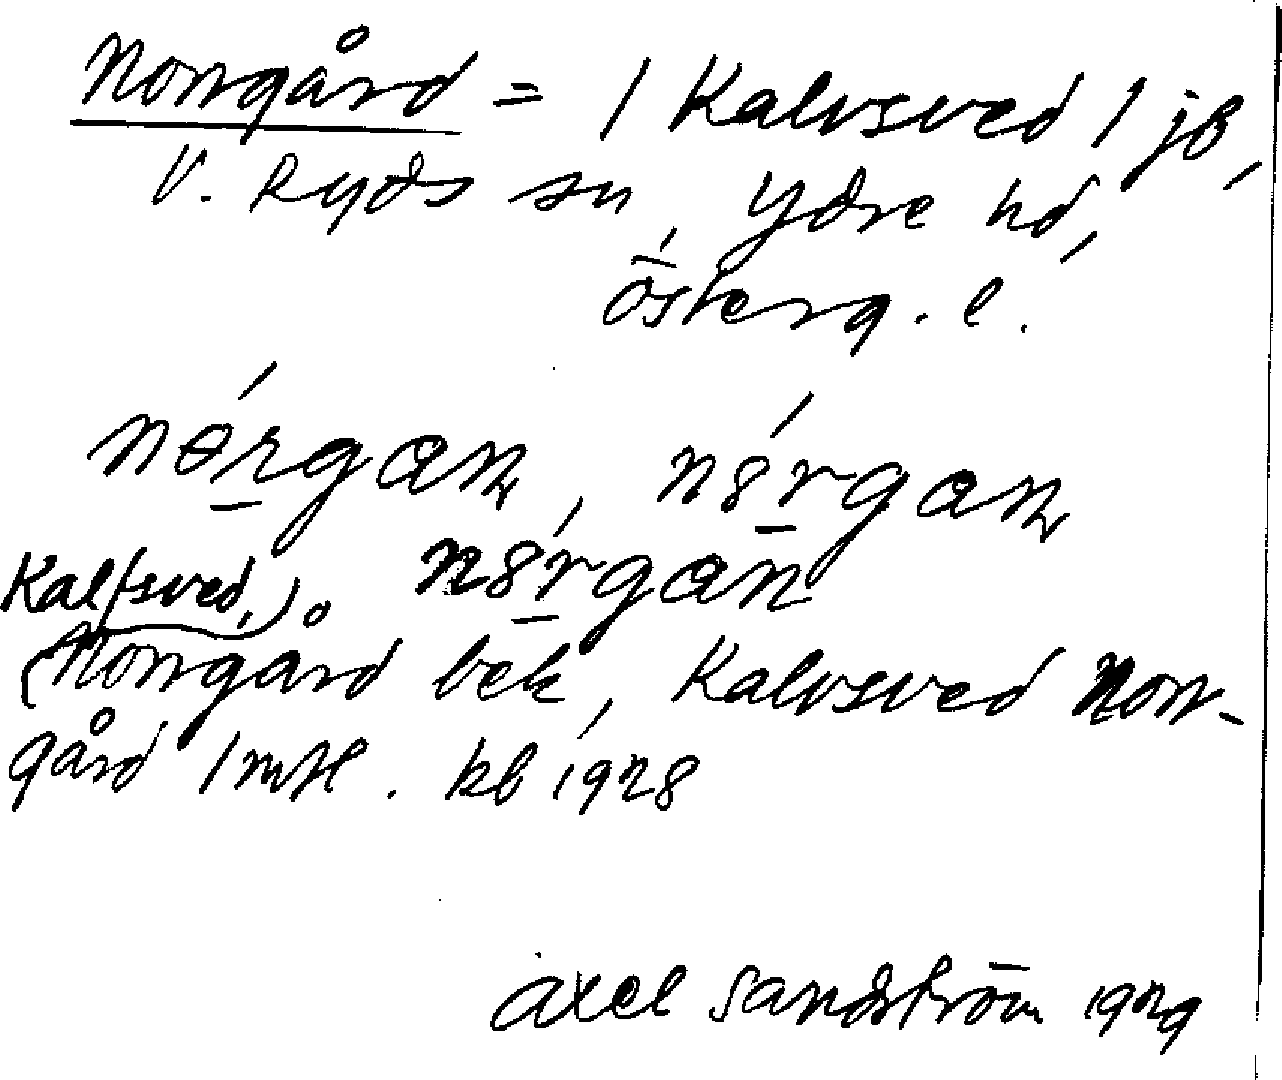 Norrgård = 1 Kalvsved 1 jb,
V. Ryds sn, Ydre hd,
Österg. l.
nórgan, nórgan
nórgan
Kalfsved,
(Norrgård bek, Kalvsved Norr-
gård 1 mtl. kb 1928
Axel Sandström 1929